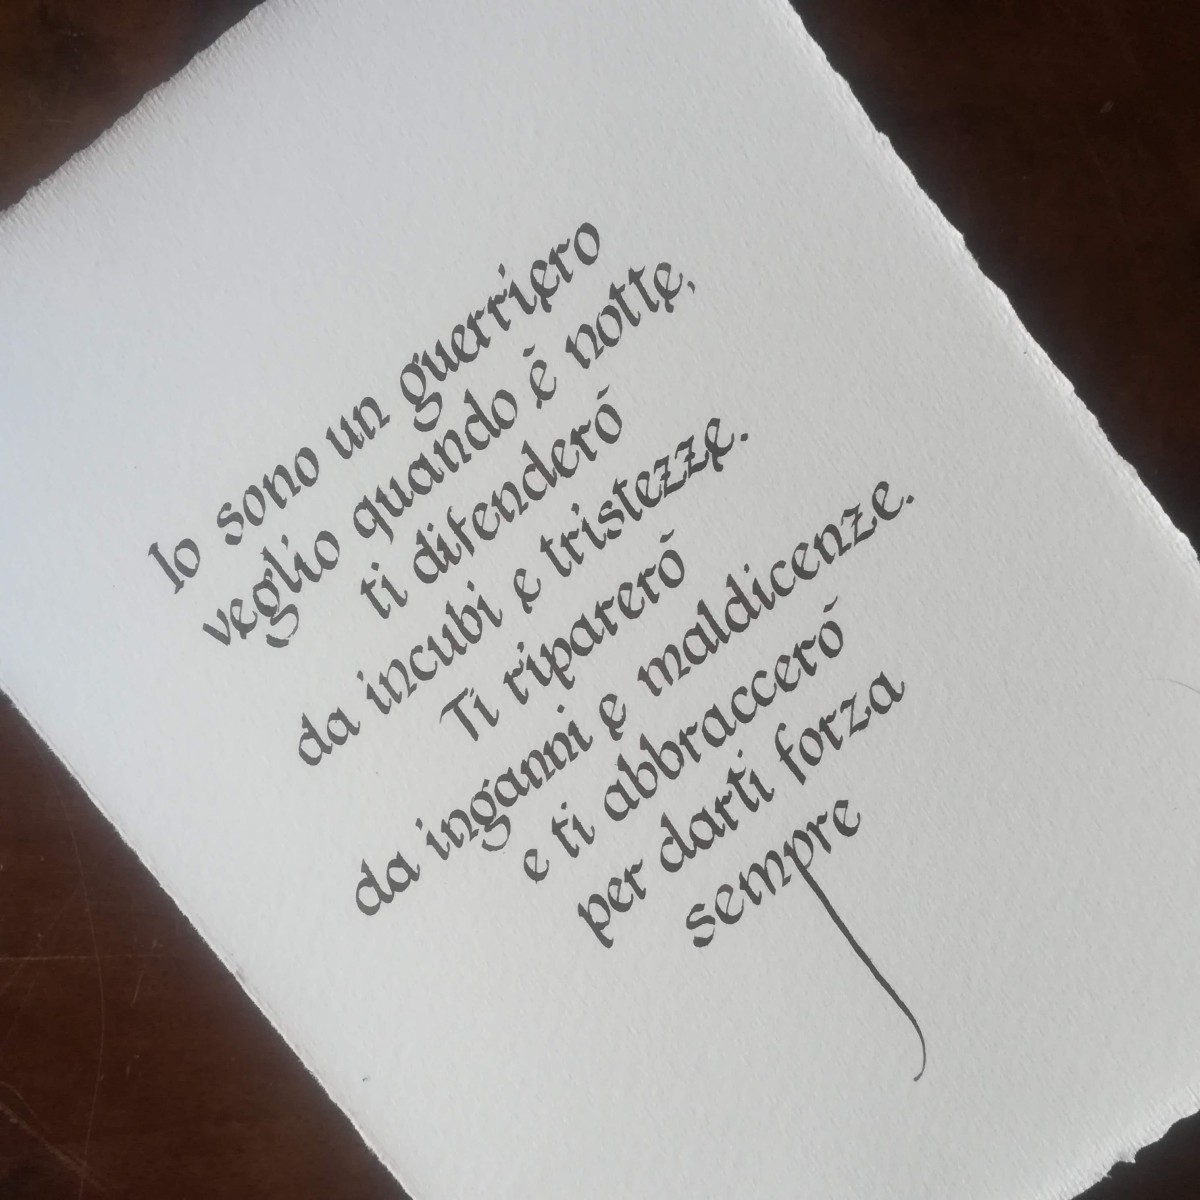 Io sono un guerriero
veglio quando è notte,
ti difenderò
da incubi e tristezze.
Ti riparerò
da inganni e maldicenze.
e ti abbraccerò
per darti forza
sempre